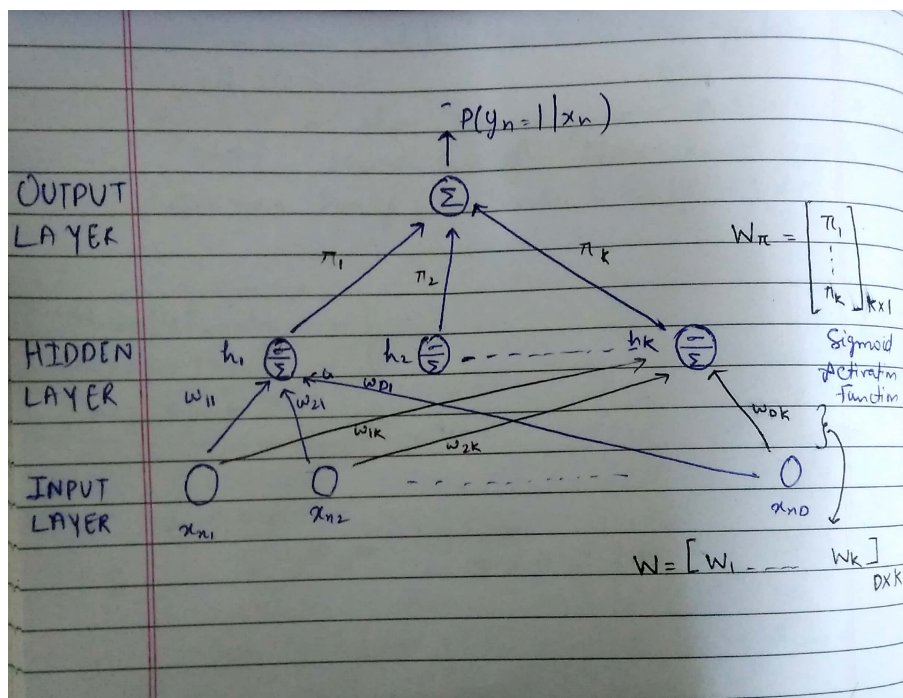 P(yn=1|xn)
OUTPUT
LAYER
Σ
π1
π2
πk
Wπ = [π1 ⋮ πk] k×1
HIDDEN
LAYER
h1
σ
Σ
h2
σ
Σ
hk
σ
Σ
Sigmoid
Activatn
Function
w11
w21
wD1
w1k
w2k
wDk
INPUT
LAYER
xn1
xn2
xnD
W = [W1 ---- Wk] D×K